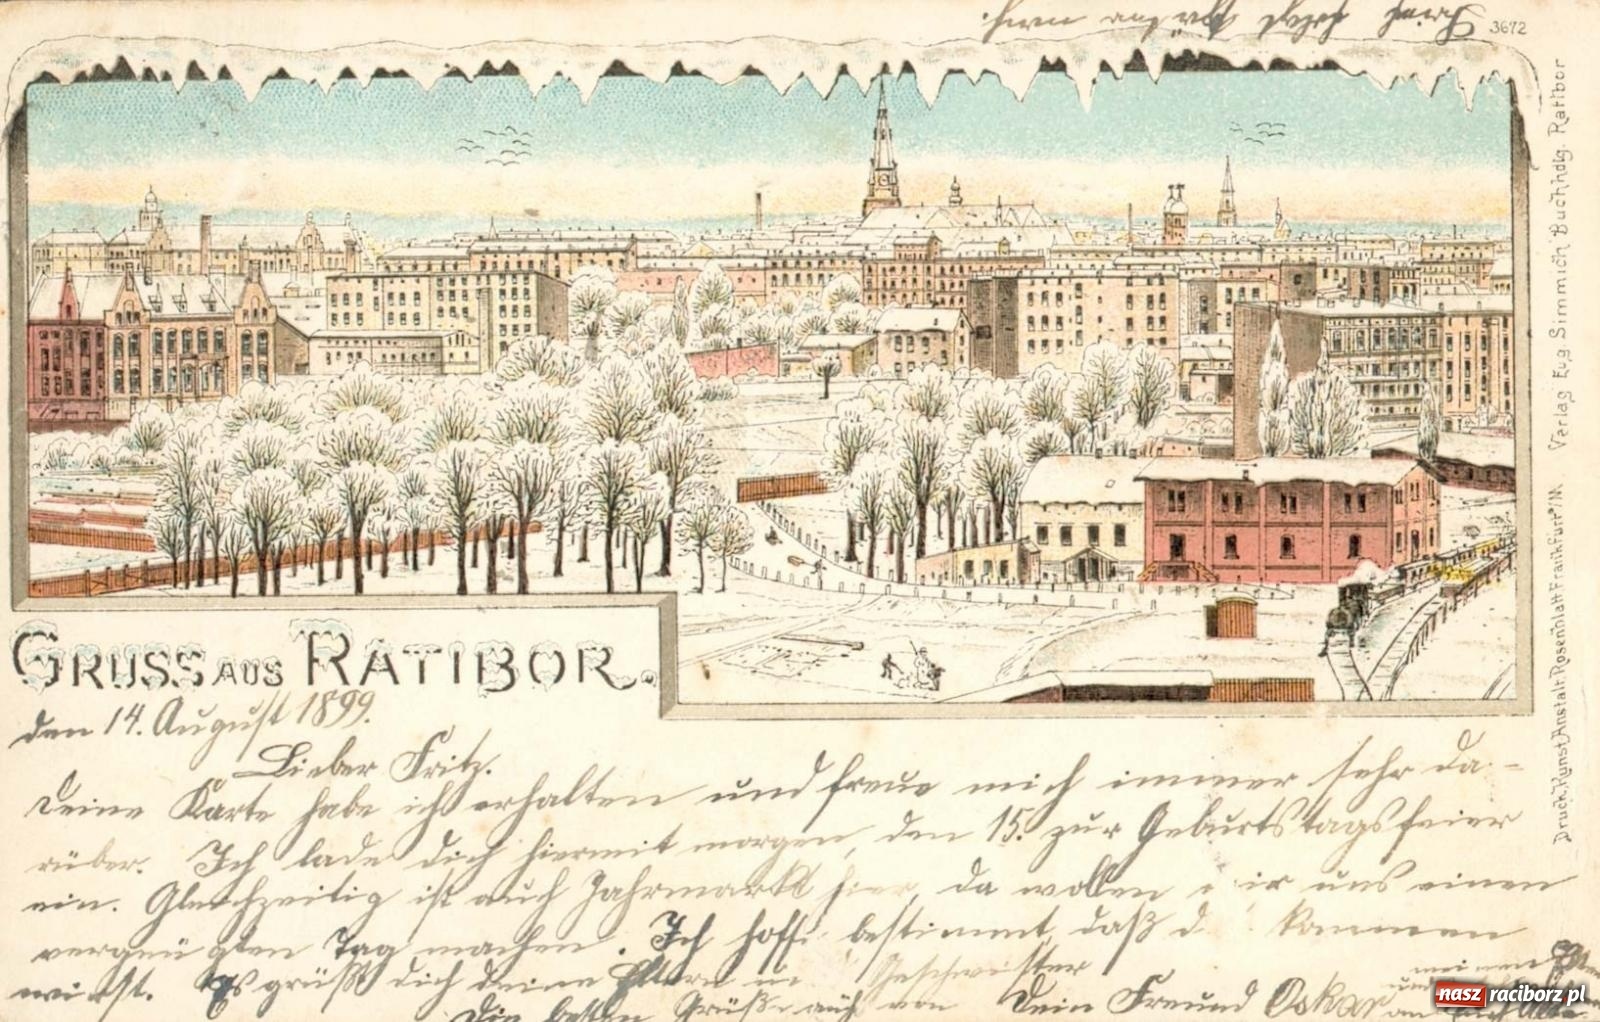 3672
Verlag Eug. Simmich Buchhdlg. Ratibor
Druck. Kunst Anstalt Rosenblatt Frankfurt a/M
GRUSS AUS RATIBOR.
den 14. August 1899.
Lieber Fritz.
Deine Karte habe ich erhalten und freue mich immer sehr da-
rüber. Ich lade dich hiermit morgen, den 15. zur Geburtstagsfeier
ein. Gleichzeitig ist auch Jahrmarkt hier, da wollen wir uns einen
vergnügten Tag machen. Ich hoffe bestimmt, daß d kommen
wirst. Es grüßt dich deine Eltern Geschwister
Dein Freund Oskar
Die besten Grüße auch von meinen Eltern
und an
nasz raciborz.pl